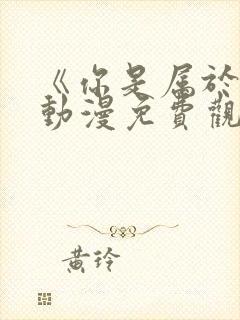 《你是属於
動漫免費觀
黄玲